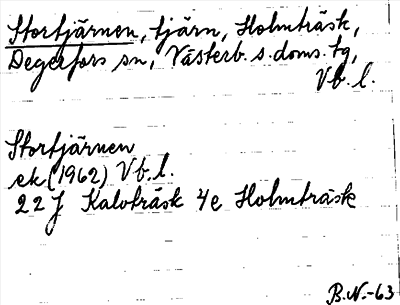 Stortjärnen, tjärn, Holmträsk,
Degerfors sn, Västerb. s. doms. tg,
Vb. l.
Stortjärnen
ek (1962) Vb. l.
22 J Kalvträsk 4e Holmträsk
B.N.-63